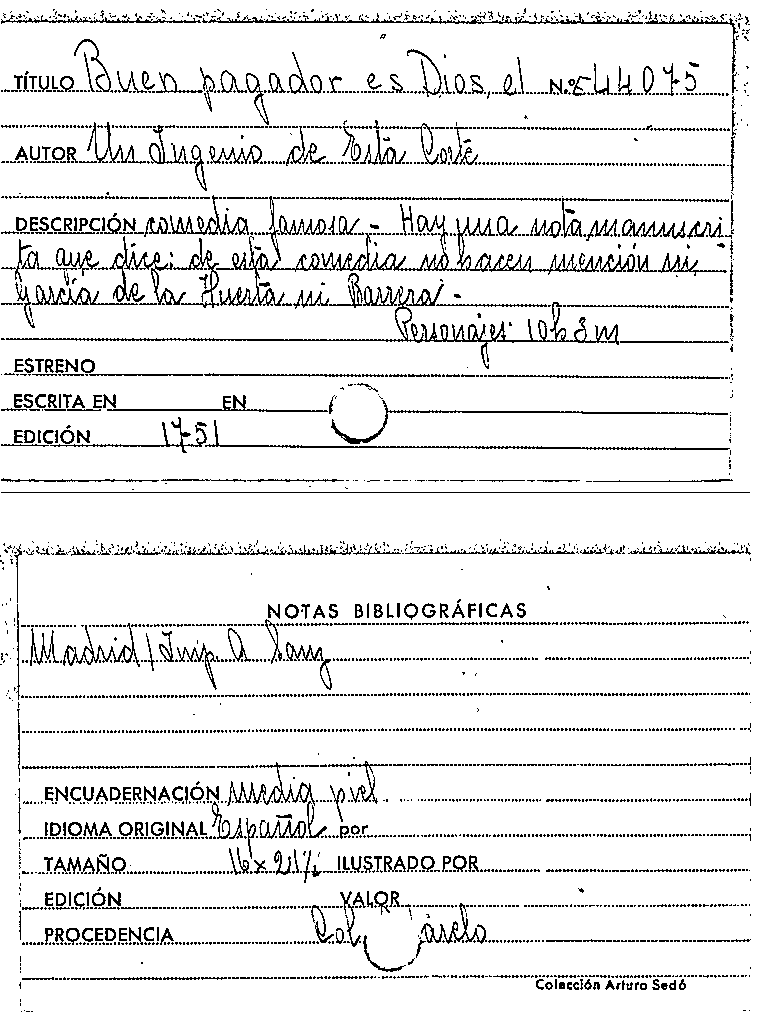 TÍTULO Buen pagador es Dios, el N.º 44075
AUTOR Un Ingenio de Esta Corte
DESCRIPCIÓN comedia famosa - Hay una nota manuscri
ta que dice: de esta comedia no hacen mención ni
García de la Huerta ni Barrera -
Personajes: 10 h 3 m
ESTRENO
ESCRITA EN EN
EDICIÓN 1751
NOTAS BIBLIOGRÁFICAS
Madrid / Imp A Sanz
ENCUADERNACIÓN media piel
IDIOMA ORIGINAL Español por
TAMAÑO 16 x 21½ ILUSTRADO POR
EDICIÓN VALOR
PROCEDENCIA Col.
Colección Arturo Sedó